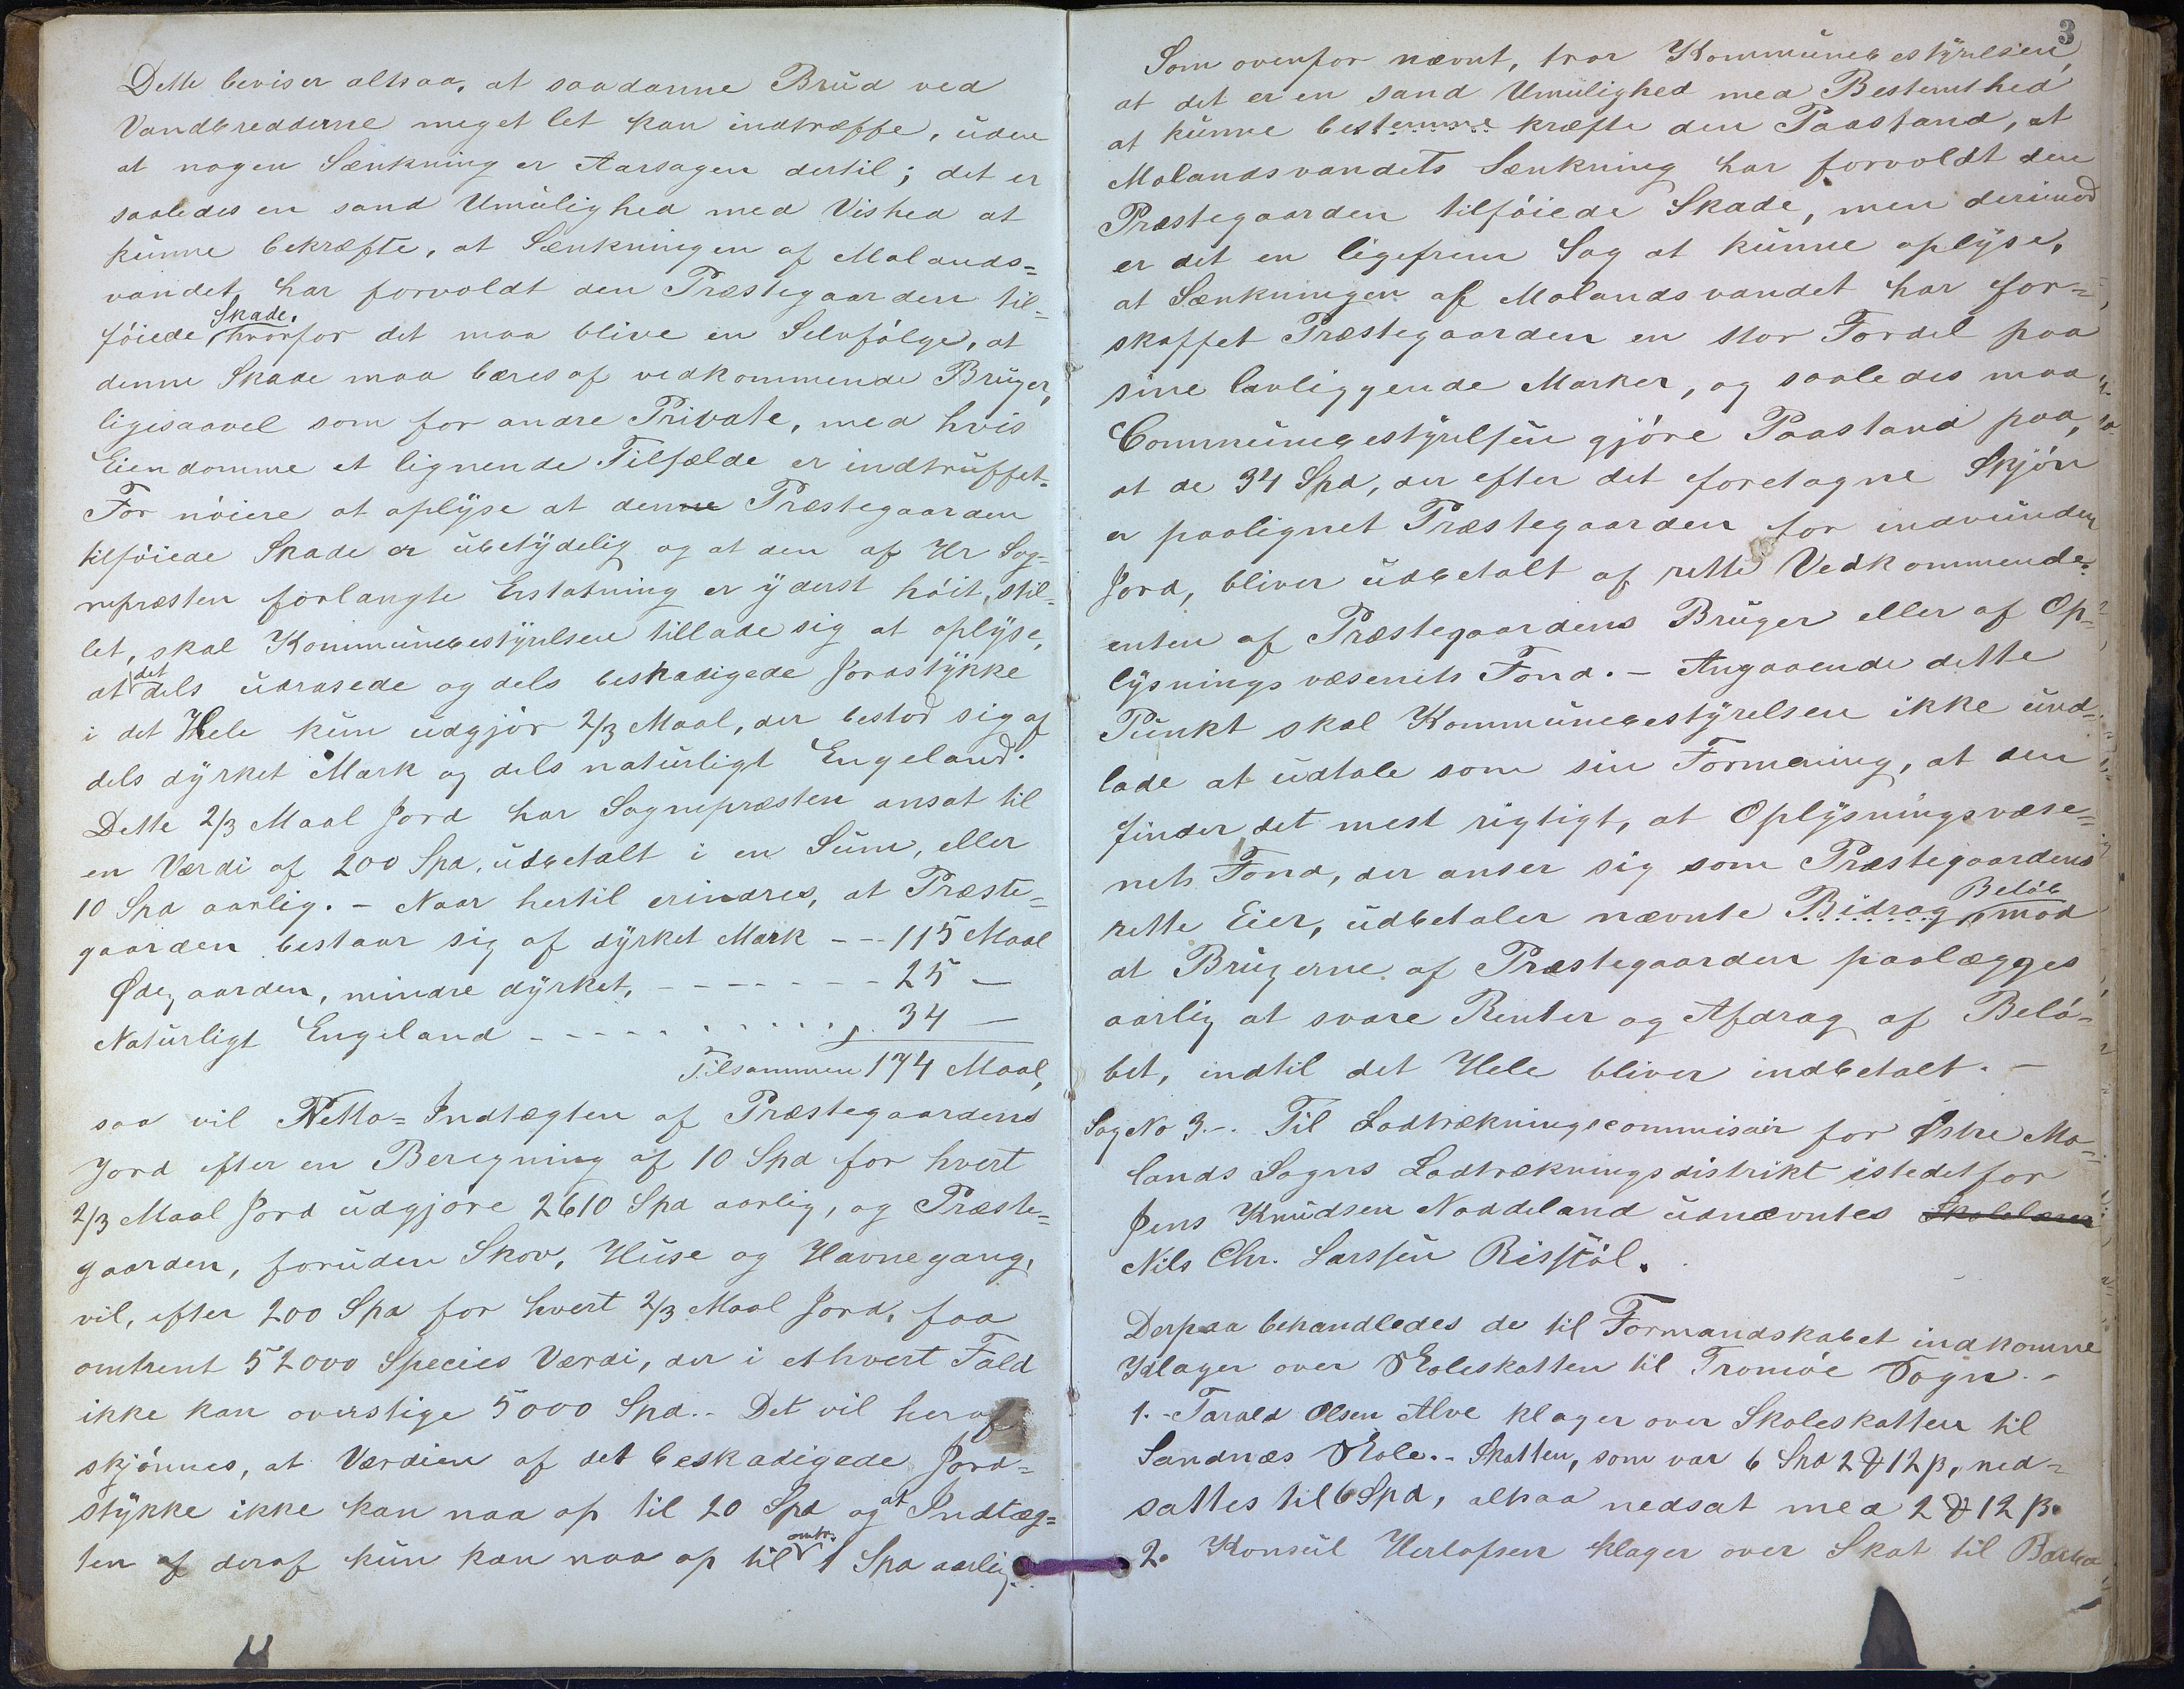 Dette beviser altsaa, at saadanne Brud ved
Vandbredderne meget let kan indtræffe, uden
at nogen Sænkning er Aarsagen dertil; det er
saaledes en sand Umulighed med Vished at
kunne bekræfte, at Sænkningen af Molands=
vandet har forvoldt den Præstegaarden til-
føiede Skade, hvorfor det maa blive en Selvfølge, at
denne Skade maa bæres af vedkommende Bruger,
ligesaavel som for andre Private, med hvis
Eiendomme et lignende Tilfælde er indtruffet.
For nøiere at oplyse at denne Præstegaarden
tilføiede Skade er ubetydelig og at den af Hr Sog-
nepræsten forlangte Erstatning er yderst høit stil-
let, skal Kommunebestyrelsen tillade sig at oplyse,
at det dels udrasede og dels beskadigede Jordstykke
i det Hele kun udgjør 2/3 Maal, der bestod sig af
dels dyrket Mark og dels naturligt Engeland.
Dette 2/3 Maal Jord har Sognepræsten ansat til
en Værdi af 200 Spd, udbetalt i en Sum, eller
10 Spd aarlig. - Naar hertil erindres, at Præste=
gaarden bestaar sig af dyrket Mark - - 115 Maal
Ødegaarden, mindre dyrket, - - - - - - - 25 —
Naturligt Engeland - - - . . . . . . . 34 —
Tilsammen 174 Maal,
saa vil Netto=Indtægten af Præstegaardens
Jord efter en Beregning af 10 Spd for hvert
2/3 Maal Jord udgjøre 2610 Spd aarlig, og Præste=
gaarden, foruden Skov, Huse og Havnegang,
vil, efter 200 Spd for hvert 2/3 Maal Jord, faa
omtrent 52000 Species Værdi, der i ethvert Fald
ikke kan overstige 5000 Spd. - Det vil heraf
skjønnes, at Værdien af det beskadigede Jord=
stykke ikke kan naa op til 20 Spd og at Indtæg=
ten af deraf kun kan naa op til omtr. 1 Spd aarlig.
3
Som ovenfor nævnt, tror Kommunebestyrelsen,
at det er en sand Umulighed med Bestemthed
at kunne bestemme kræfte den Paastand, at
Molandsvandets Sænkning har forvoldt den
Præstegaarden tilføiede Skade, men derimod
er det en ligefrem Sag at kunne oplyse,
at Sænkningen af Molandsvandet har for=
skaffet Præstegaarden en stor Fordel paa
sine lavliggende Marker, og saaledes maa
Communebestyrelsen gjøre Paastand paa,
at de 34 Spd, der efter det foretagne Skjøn
er paalignet Præstegaarden for indvunden
Jord, bliver udbetalt af rette Vedkommende,
enten af Præstegaardens Bruger eller af Op-
lysningsvæsenets Fond. - Angaaende dette
Punkt skal Kommunebestyrelsen ikke und-
lade at udtale som sin Formening, at den
finder det mest rigtigt, at Oplysningsvæse=
nets Fond, der anser sig som Præstegaardens
rette Eier, udbetaler nævnte Bidrag Beløb mod
at Brugerne af Præstegaarden paalægges
aarlig at svare Renter og Afdrag af Belø-
bet, indtil det Hele bliver indbetalt. -
Sag No 3. -. Til Lodtrækningscommisair for Østre Mo=
lands Sogns Lodtrækningsdistrikt istedetfor
Jens Knudsen Naddeland udnævntes Skolelærer
Nils Chr. Larssen Risstøl.
Derpaa behandledes de til Formandskabet indkomne
Klager over Skoleskatten til Tromøe Sogn. -
1. - Tarald Olsen Alve klager over Skoleskatten til
Sandnæs Skole. - Skatten, som var 6 Spd 2 ₰ 12 β, ned-
sattes til 6 Spd, altsaa nedsat med 2 ₰ 12 β.
2. Konsul Herlofsen klager over Skat til